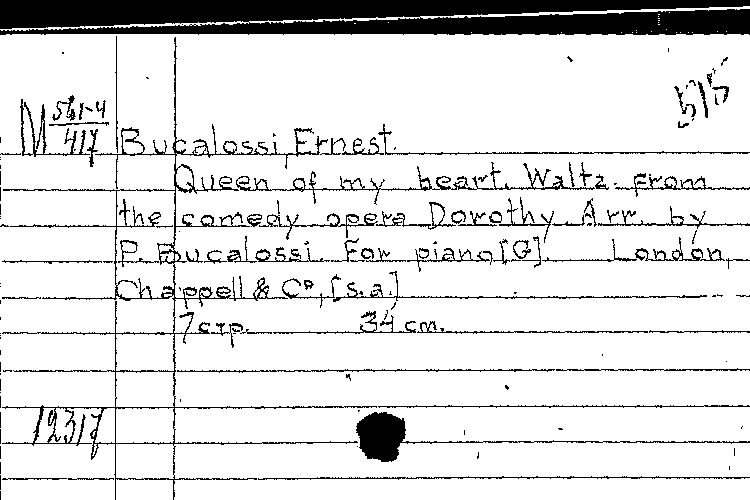 515
M 561-4
417
Bucalossi, Ernest.
Queen of my heart. Waltz. From
the comedy opera Dorothy. Arr. by
P. Bucalossi. For piano [G]. London,
Chappell & Cº, [s.a.]
7 стр. 34 cm.
12317